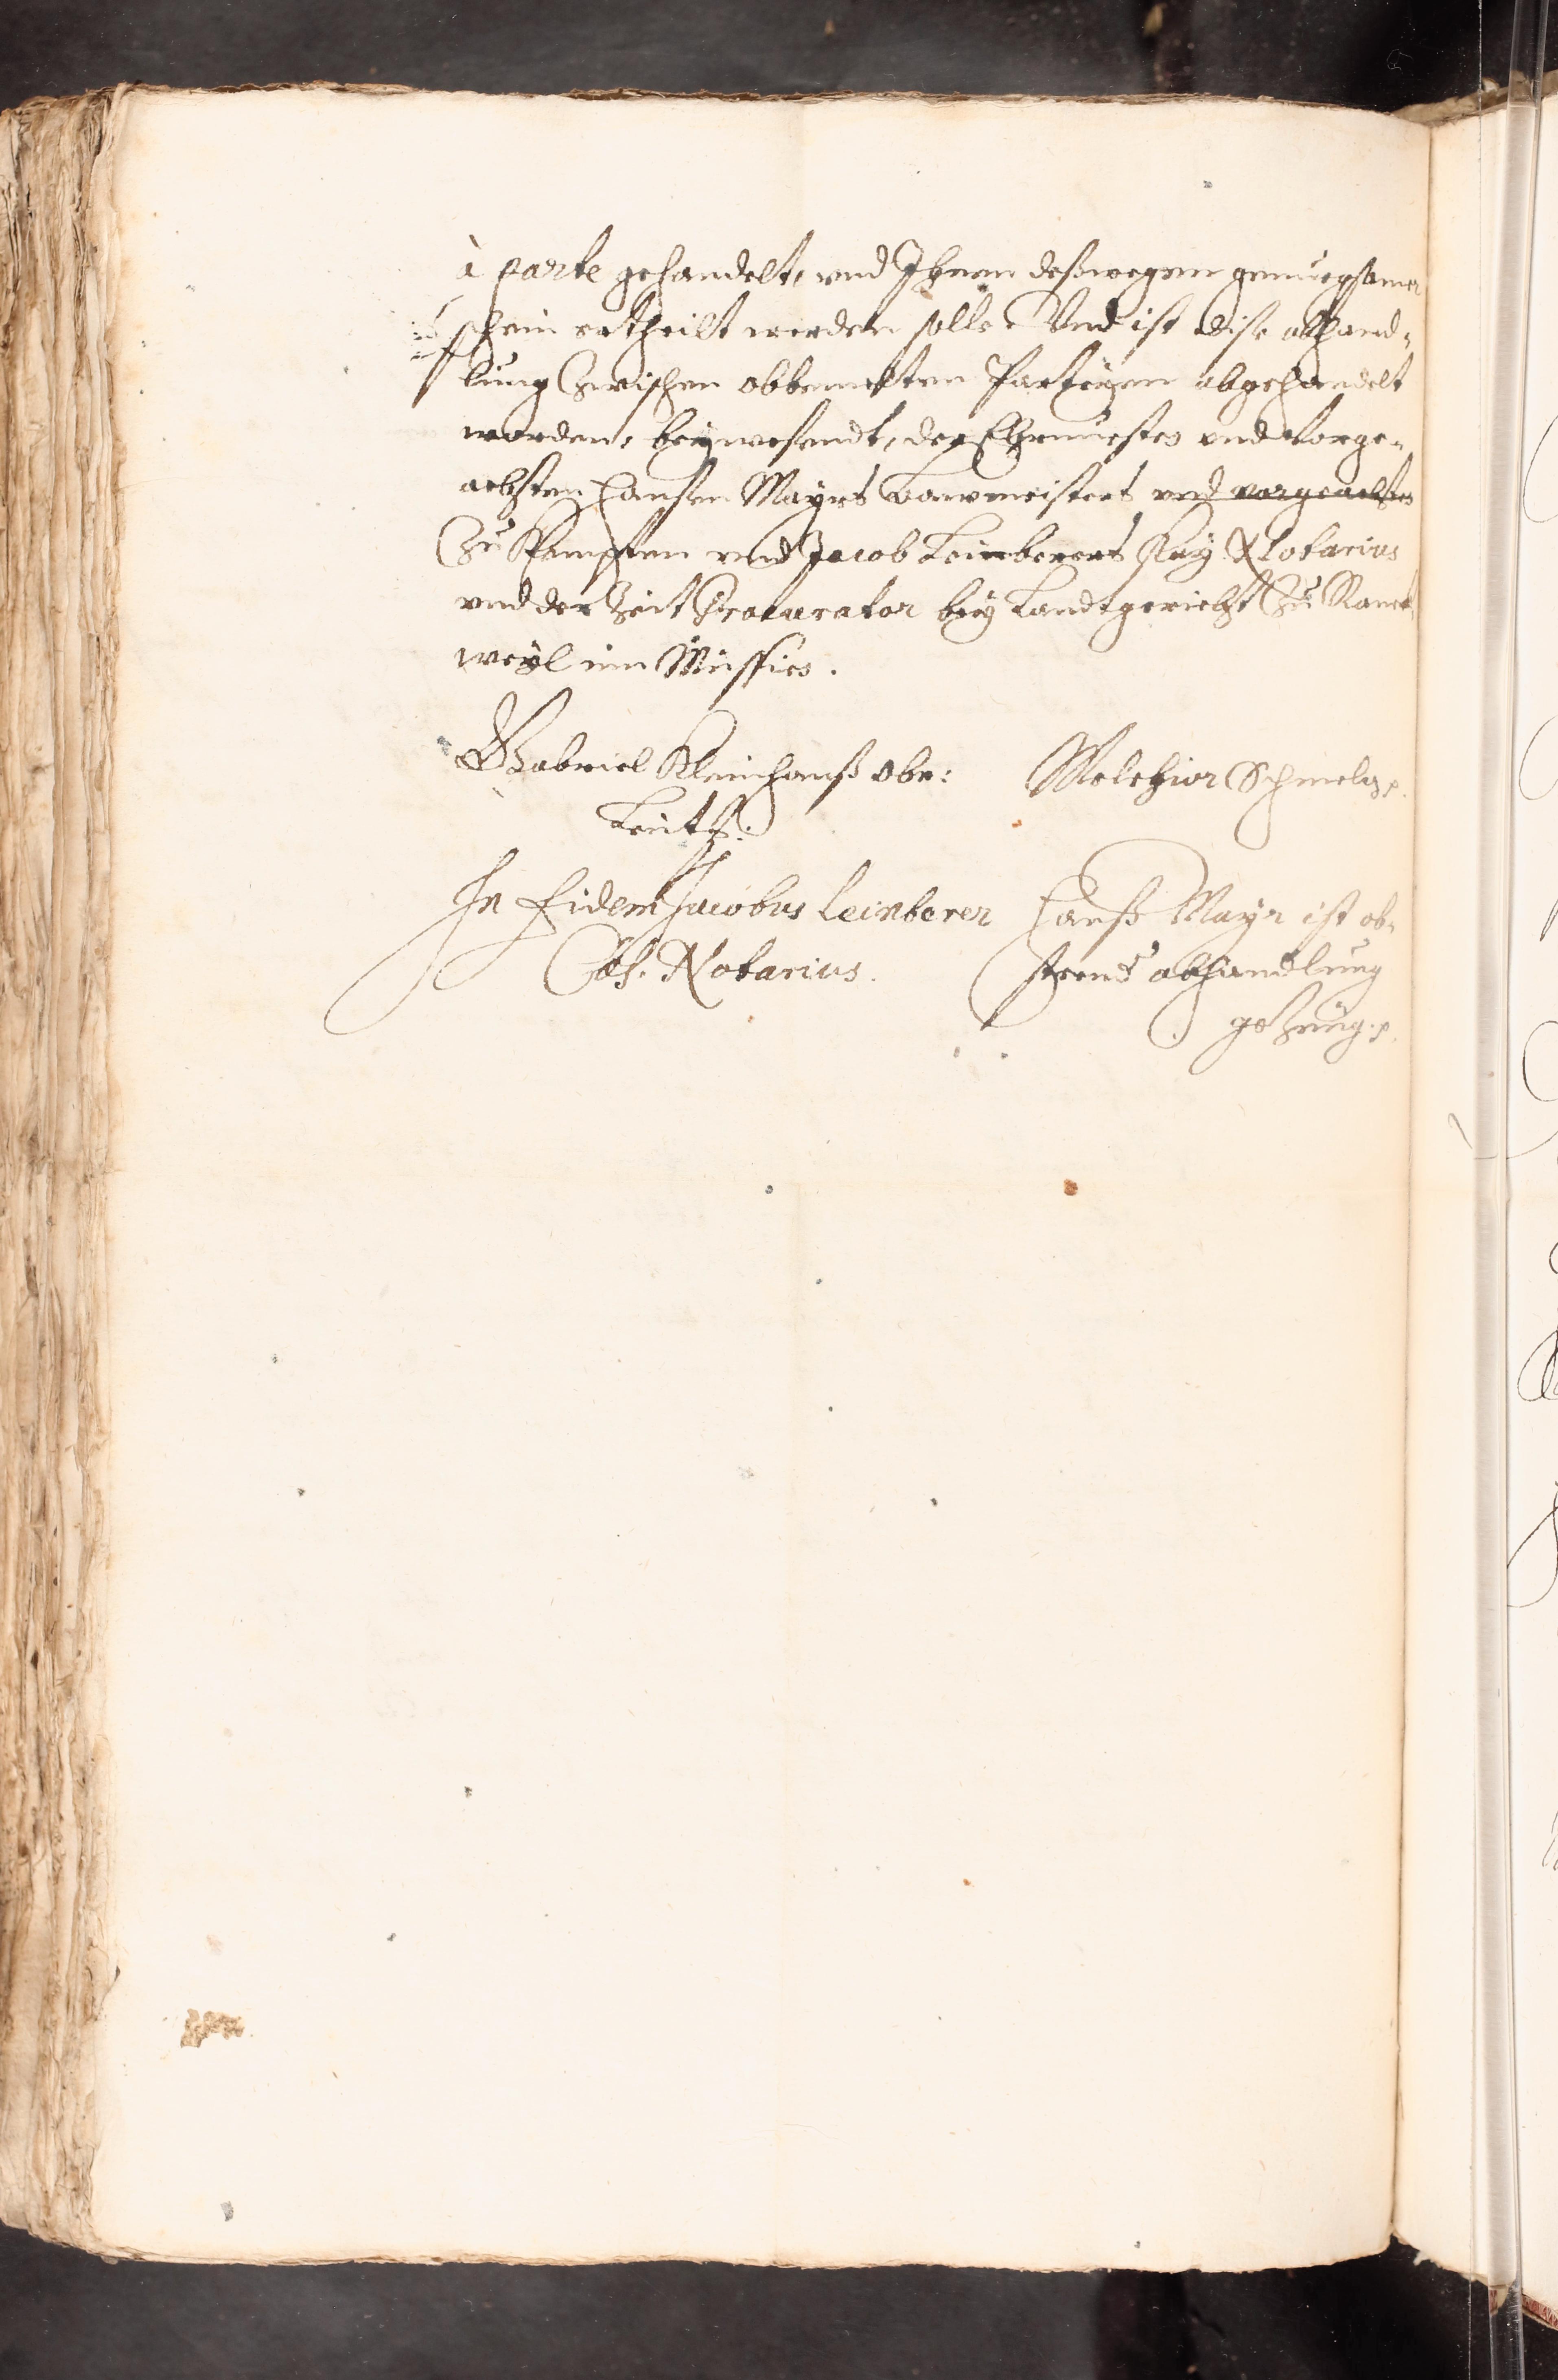 à parte gehandelt, und Ihnen deßwegen genuegsamer
schein ertheilt werden solle. Und ist dise abhand-
lung zwischen obbemelten Parteyen abgehandelt
worden, beywesendt, der Ehrnuesten und Vorge-
achten Hansen Mayrs Bawmeisters und vorgeachten
zu und Jacob Leinberers Kay: Notarius
und der Zeit Procurator bey Landtgericht zu Ranck-
weyl im
Gabriel Kleinhanß obr:
Leuth:
Melchior Schmelz
In fidem Jacobus Leinberer
Cæs. Notarius.
Hanß Mayr ist ob-
steend abhandlung
gezeug.